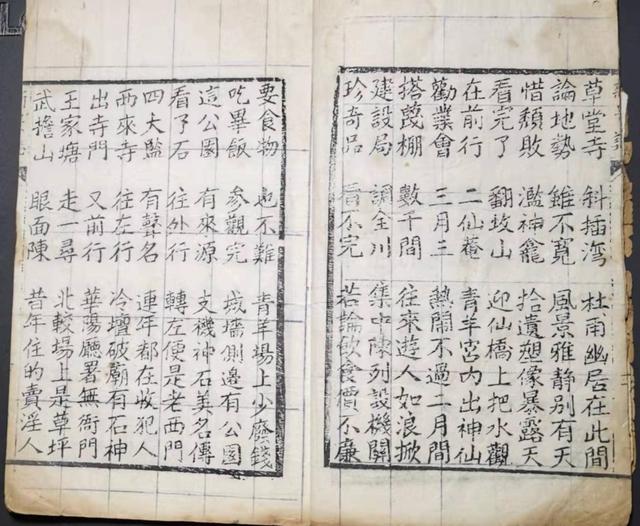 草堂寺 斜插湾 杜甫幽居在此間
論地勢 雖不寬 風景雅静別有天
惜頹敗 濫神龕 拾遺塑像暴露天
看完了 翻坟山 迎仙橋上把水觀
在前行 二仙菴 青羊宮内出神仙
勸業會 三月三 熱鬧不過二月間
搭蔑棚 數千間 往來遊人如浪掀
建設局 調全川 集中陳列設機關
珍奇品 看不完 若論飲食價不廉
要食物 也不難 青羊場上少廢錢
吃畢飯 參觀完 城墻側邊有公園
這公園 有來源 支禨神石美名傳
看了石 往外行 轉左便是老西門
四大監 有聲名 連年都在收犯人
西來寺 往左行 冷壇破廟有石神
出寺門 又前行 華陽廳署無衙門
王家塘 走一尋 北較場上是草坪
武擔山 眼面陳 昔年住的賣淫人